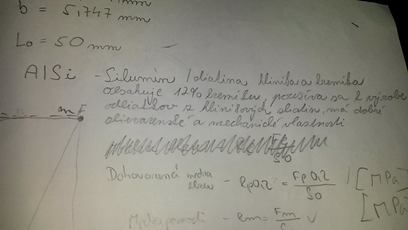 b = 5,747 mm
L₀ = 50 mm
AlSi - Silumín / zliatina hliníka a kremíka
obsahuje 12% kremíku, používa sa k výrobe
odliatkov z hliníkových zliatin, má dobré
zlievarenské a mechanické vlastnosti
F
Dohovorená medza klzu - Rp0,2 = Fp0,2 / S0 [MPa]
Medza pevnosti - Rm = Fm [MPa]